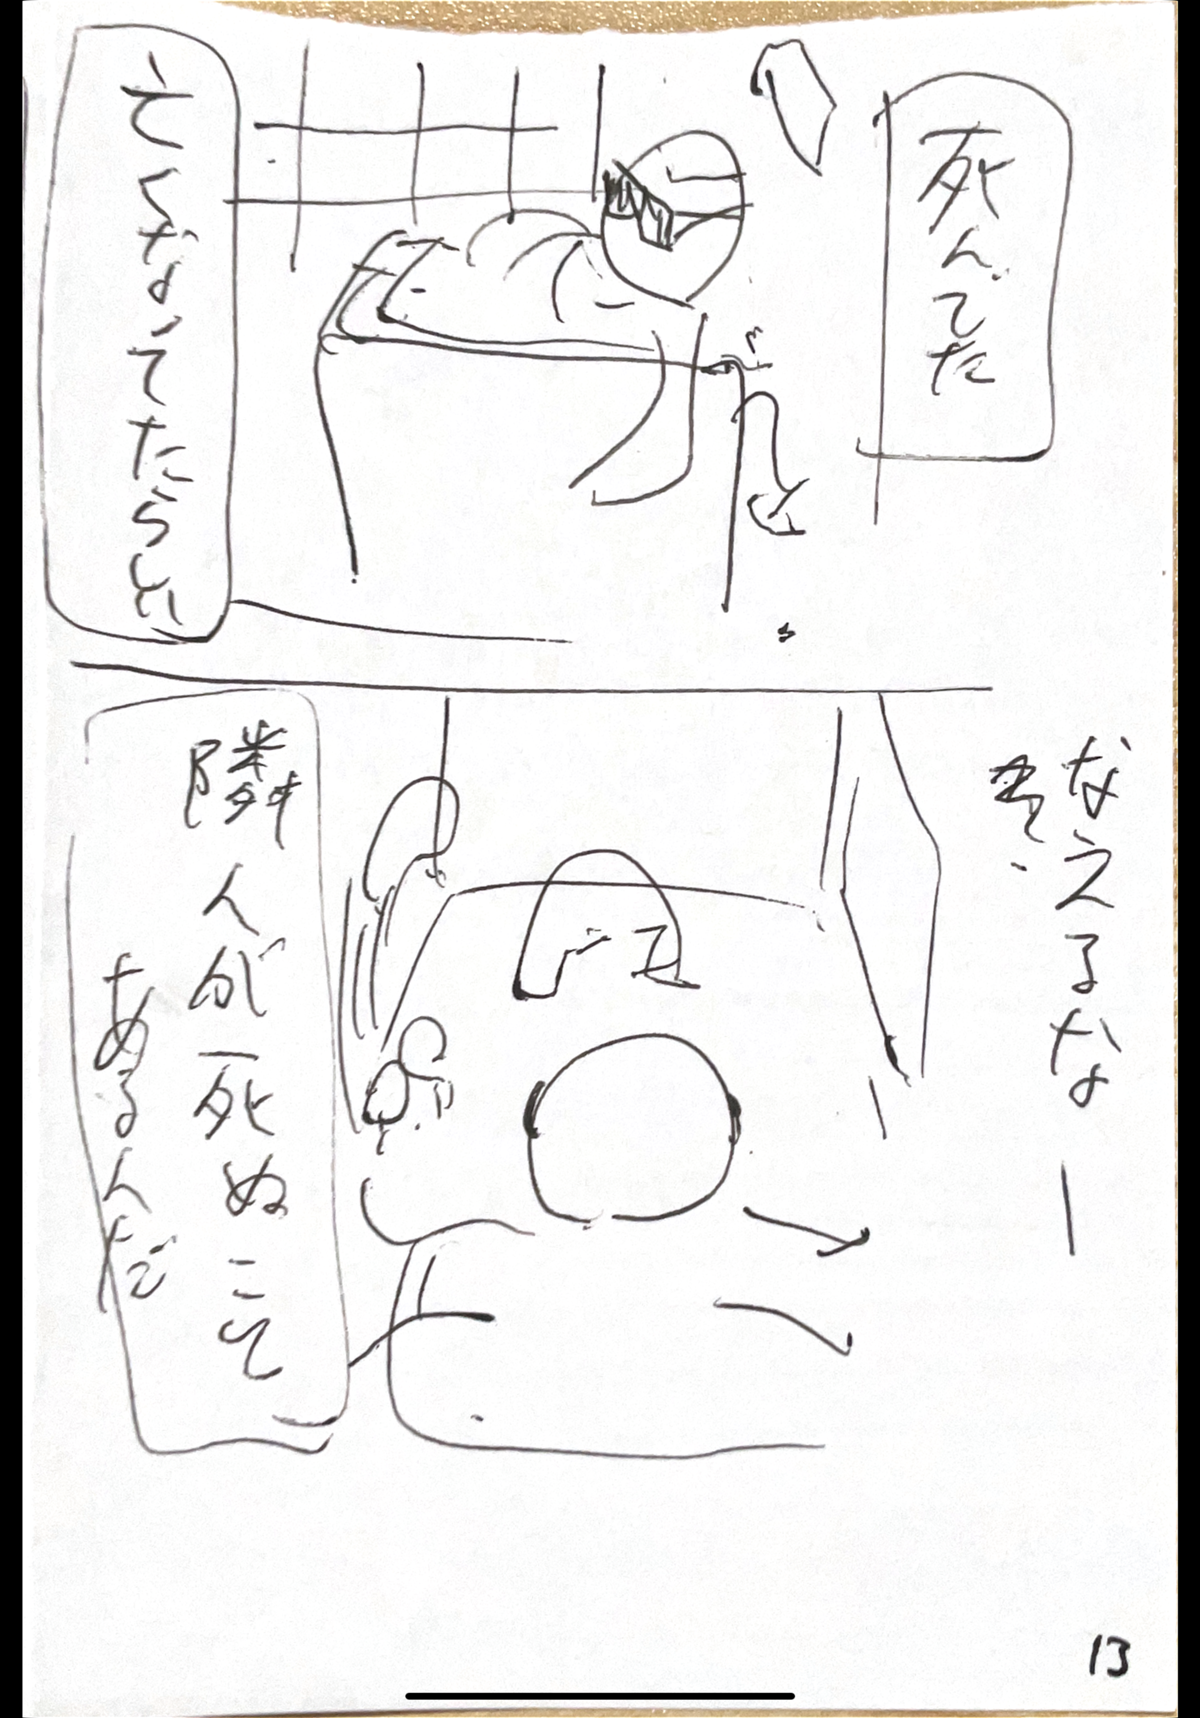 死んでた
亡くなてたらしい
なえるなー
隣人が死ぬこて
あるんだ
13